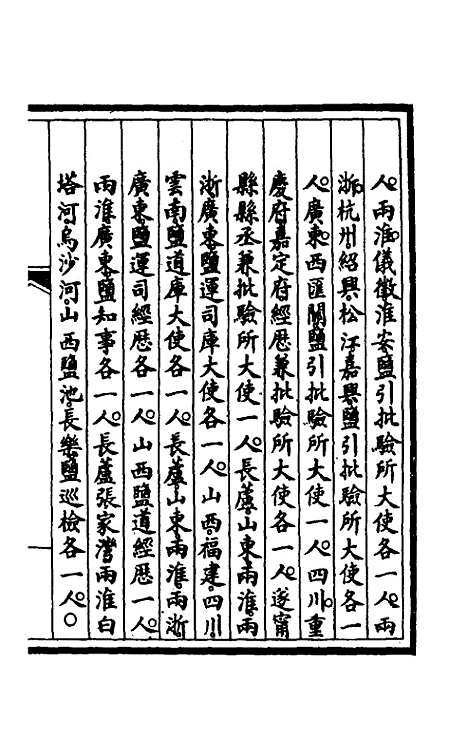 人兩淮儀徵淮安鹽引批驗所大使各一人兩
浙杭州紹興松江嘉興鹽引批驗所大使各一
人廣東西匯關鹽引批驗所大使一人四川重
慶府嘉定府經歷兼批驗所大使各一人遂甯
縣縣丞兼批驗所大使一人長蘆山東兩淮兩
浙廣東鹽運司庫大使各一人山西福建四川
雲南鹽道庫大使各一人長蘆山東兩淮兩浙
廣東鹽運司經歷各一人山西鹽道經歷一人
兩淮廣東鹽知事各一人長蘆張家灣兩淮白
塔河烏沙河山西鹽池長樂鹽巡檢各一人○